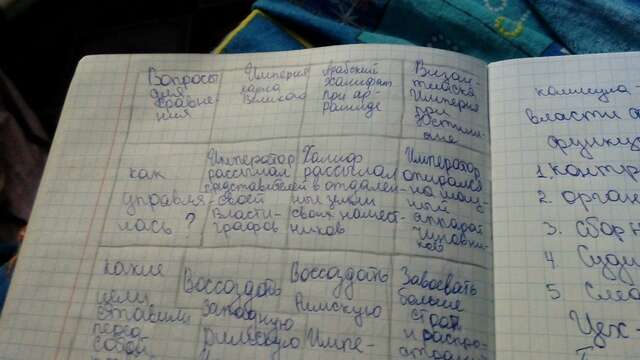 Вопросы
для
сравне-
ния
Империя
Карла
Великого
Арабский
Халифат
при
Визан-
тийская
Империя
при
Юстини-
ане
как
управля-
лась?
Император
рассылал
представителей
своей
власти-
графов
Халиф
рассылал
в отдален-
ные
своих намест-
ников
Император
опирался
на мощ-
ный
аппарат
чиновни-
ков
какие
цели
ставили
перед
собой
Воссоздать
Западную
Римскую
Воссоздать
Римскую
Импе-
Завоевать
больше
стран
и распро-
власти
1. контр
2. орган
3. сбор н
4 Суди
5 След